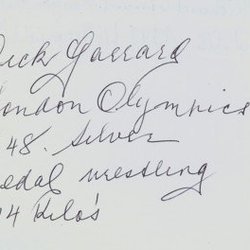 Dick Garrard
London Olympics
48. Silver
Medal wrestling
74 Kilo's